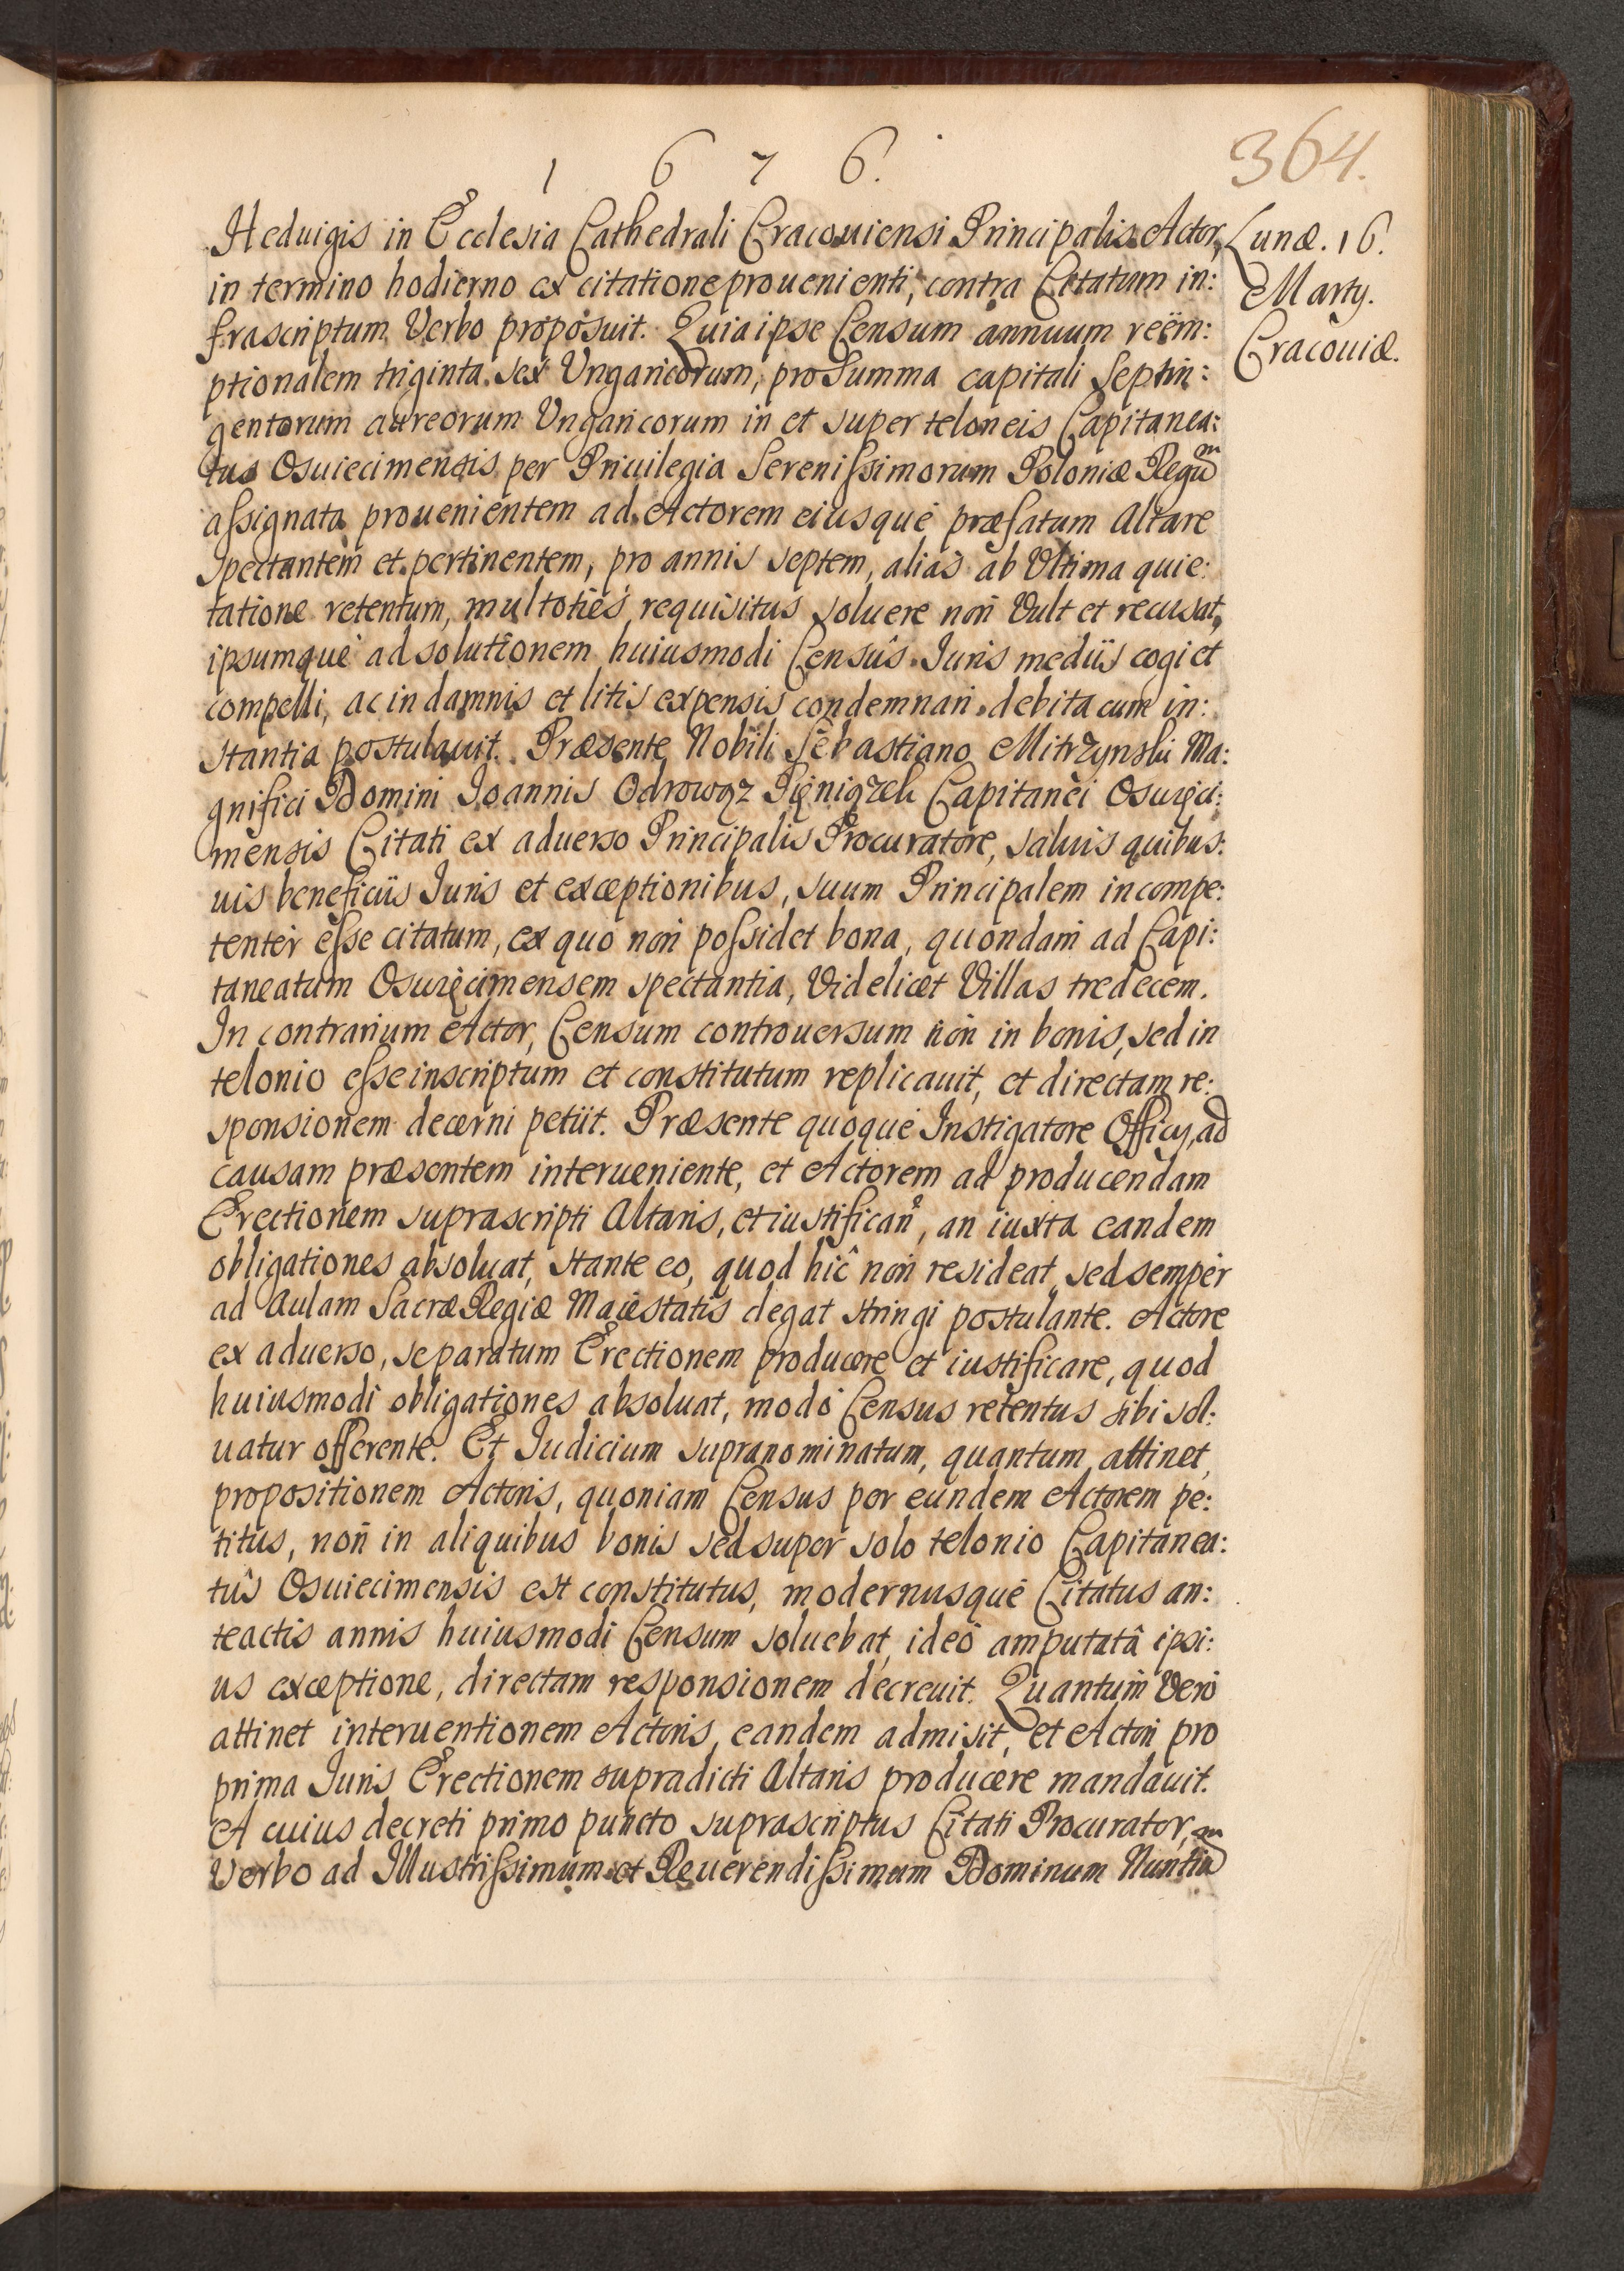 1 6 7 6.
364.
Heduigis in Ecclesia Cathedrali Cracouiensi Principalis Actor,
in termino hodierno ex citatione prouenienti, contra Citatum in:
frascriptum Verbo proposuit. Quia ipse Censum annuum reëm:
ptionalem triginta sex Vngaricorum, pro Summa capitali Septin:
gentorum aureorum Vngaricorum in et super teloneis Capitanea:
tus Osuiecimensis per Priuilegia Serenissimorum Poloniæ Regũ
assignata prouenientem ad Actorem eiusque præfatum Altare
spectantem et pertinentem, pro annis septem, alias ab Vltima quie:
tatione retentum, multoties requisitus soluere non Vult et recusat,
ipsumque ad solutionem huiusmodi Censûs Iuris medijs cogi et
compelli, ac in damnis et litis expensis condemnari debita cum in:
stantia postulauit. Præsente Nobili Sebastiano Mitrzynski Ma:
gnifici Domini Ioannis Odrowąz Pięniązek Capitanei Osuięci:
mensis Citati ex aduerso Principalis Procuratore, saluis quibus:
uis beneficijs Iuris et exceptionibus, suum Principalem incompe:
tenter esse citatum, ex quo non possidet bona, quondam ad Capi:
taneatum Osuięcimensem spectantia, Videlicet Villas tredecem.
In contrarium Actor, Censum controuersum non in bonis, sed in
telonio esse inscriptum et constitutum replicauit, et directam re:
sponsionem decerni petijt. Præsente quoque Instigatore Officy, ad
causam præsentem interueniente, et Actorem ad producendam
Erectionem suprascripti Altaris, et iustifican̄, an iuxta eandem
obligationes absoluat, stante eo, quod hîc non resideat, sed semper
ad Aulam Sacræ Regiæ Maiestatis degat stringi postulante. Actore
ex aduerso, separatum Erectionem producere et iustificare, quod
huiusmodi obligationes absoluat, modò Census retentus sibi sol:
uatur offerente. Et Iudicium supranominatum, quantum attinet,
propositionem Actoris, quoniam Census per eundem Actorem pe:
titus, non in aliquibus bonis sed super solo telonio Capitanea:
tûs Osuiecimensis est constitutus, modernusque Citatus an:
teactis annis huiusmodi Censum soluebat, ideò amputatâ ipsi:
us exceptione, directam responsionem decreuit. Quantum Verò
attinet interuentionem Actoris, eandem admisit, et Actori pro
prima Iuris Erectionem supradicti Altaris producere mandauit.
A cuius decreti primo puncto suprascriptus Citati Procurator,
Verbo ad Illustrissimum et Reuerendissimum Dominum Nuntiũ
Lunæ. 16.
Marty.
Cracouiæ.